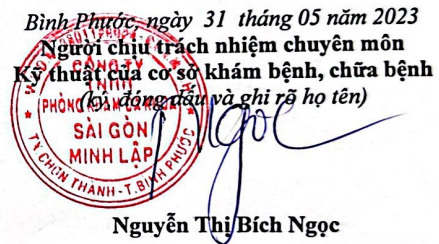 Bình Phước, ngày 31 tháng 05 năm 2023
Người chịu trách nhiệm chuyên môn
Kỹ thuật của cơ sở khám bệnh, chữa bệnh
(ký, đóng dấu và ghi rõ họ tên)
CÔNG TY
TNHH
PHÒNG KHÁM ĐA KHOA
SÀI GÒN
MINH LẬP
TX CHƠN THÀNH - T. BÌNH PHƯỚC
Ngọc
Nguyễn Thị Bích Ngọc